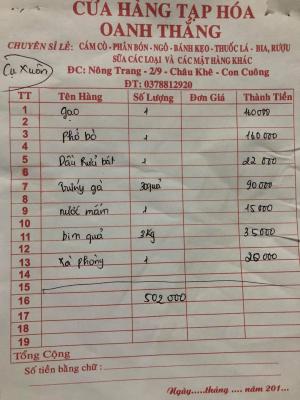 CỬA HÀNG TẠP HÓA
OANH THẮNG
CHUYÊN SỈ LẺ: CÁM CÒ - PHÂN BÓN - NGÔ - BÁNH KẸO - THUỐC LÁ - BIA, RƯỢU
SỮA CÁC LOẠI VÀ CÁC MẶT HÀNG KHÁC
Cụ Xuân
ĐC: Nông Trang - 2/9 - Châu Khê - Con Cuông
ĐT: 0378812920
TT Tên Hàng Số Lượng Đơn Giá Thành Tiền
1 gạo 1
2
3 Phở bò 1 140 000
4
5 Dầu Rửa bát 1 22 000
6
7 trứng gà 30 quả 90.000
8
9 nước mắm 1 15 000
10
11 bin quả 3kg 35000
12
13 Xà phòng 1
14
15
16 502 000
17
18
19
Tổng Cộng
Số tiền bằng chữ:
Ngày.....tháng .... năm 201...